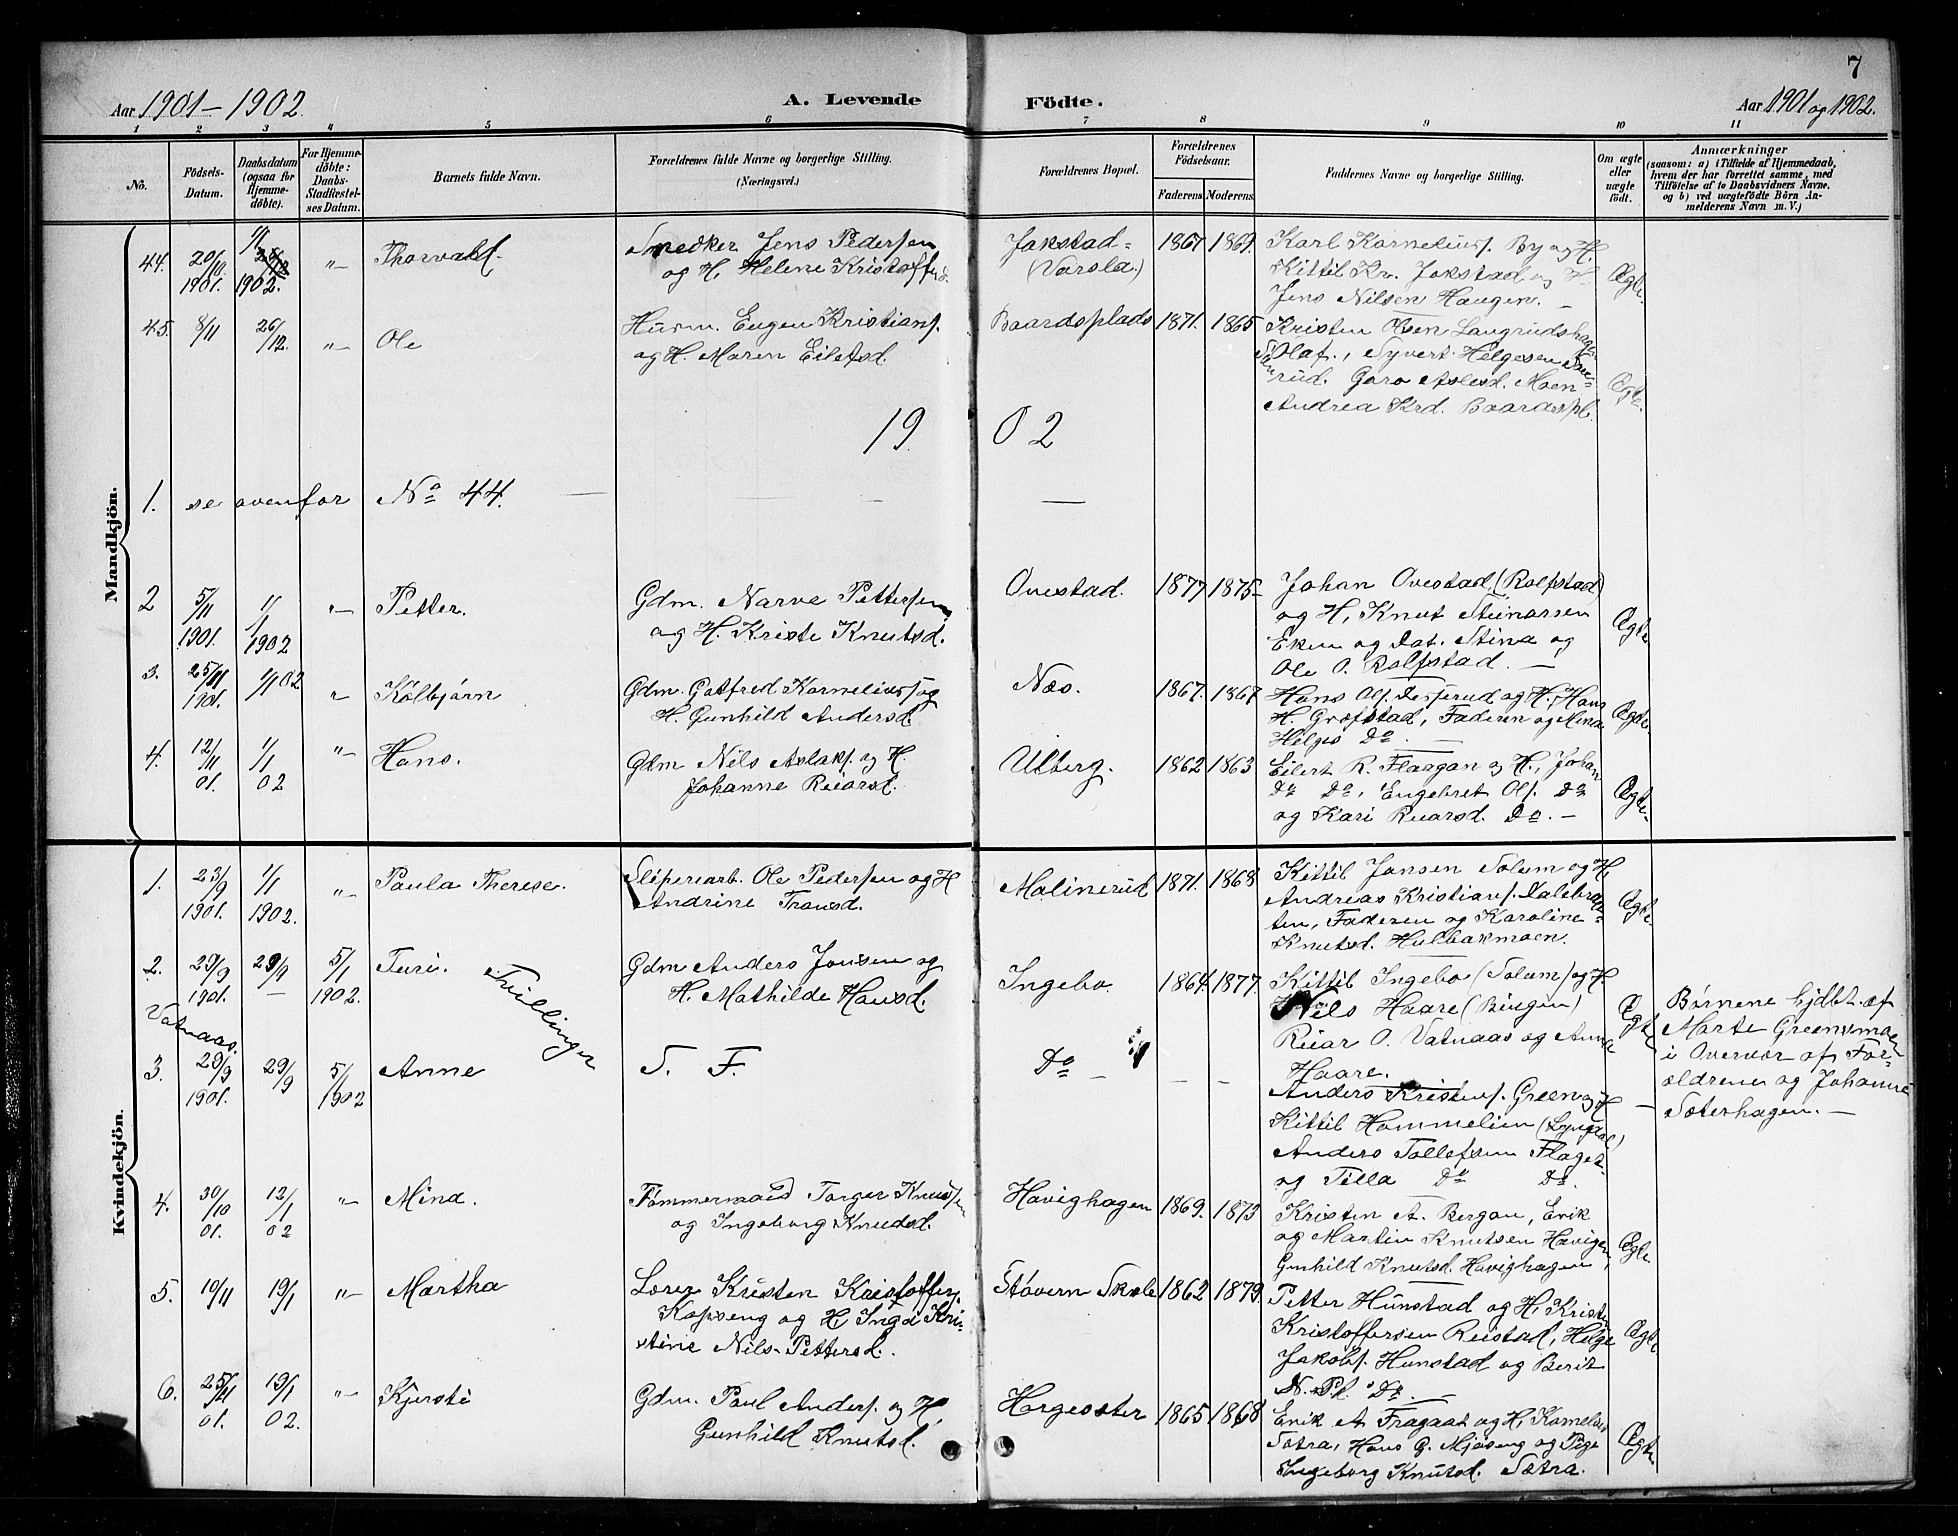 7
Aar 1901 - 1902. A. Levende Födte. Aar 1901 og 1902.
1 2 3 4 5 6 7 8 9 10 11
No. Födsels-Datum. Daabsdatum (ogsaa for Hjemme-döbte). For Hjemme-döbte: Daabs-Stadfæstel-ses Datum. Barnets fulde Navn. Forældrenes fulde Navne og borgerlige Stilling. (Næringsvei.) Forældrenes Bopæl. Forældrenes Födselsaar. Faderens Moderens Faddernes Navne og borgerlige Stilling. Om ægte eller uægte födt. Anmærkninger
(saasom: a) i Tilfælde af Hjemmedaab, hvem der har forrettet samme, med Tilföielse af to Daabsvidners Navne, og b) ved uægtefödte Börn An-melderens Navn m. V.)
Mandkjön.
44. 20/10 1901. 1/1 1902. " Thorvald. Snedker Jens Pedersen Jokstad- 1867 1869. Karl Korneliusf. By og H.
og H. Helene Kristoffersd. (Varsla.) Kittil Kr. Jokstad og H
Jens Nilsen Haugen. — Ægte.
45. 8/11 26/12. " Ole Husm. Eugen Kristianf. Baardsplads 1871. 1865 Kristen Olsen Langrudshagen
og H. Maren Eilefsd. Olaf., Syvert Helgesen
rud. Goro Aslesd. Moen Ægte.
Andrea Krd. Baardspl.
19 02
1. se ovenfor No 44. — —
2 5/11 1901. 1/1 1902 " Petter. Gdm. Narve Pettersen Ovestad. 1877 1875 Johan Ovestad (Rolfstad)
og H. Kriste Knutsd. og H, Knut Steinarsen Ægte
Eken og Dat. Stina og
Ole O. Rolfstad. —
3. 25/11 1901. 1/1 02 " Kolbjørn Gdm. Gotfred Korneliusf og Næs. 1867. 1867 Hans Olf. og H, Hans
H. Gunhild Andersd. H. Grofstad, Faderen og Mina Ægte.
Helges Do. —
4. 12/11 01. 1/1 02 " Hans. Gdm Nils Aslakf. og H. Ulberg. 1862 1863 Eilert R. Flaagan og H., Johan
Johanne Ruarsd. Do Do, Engebret Olf. Do Ægte.
og Kari Ruarsd. Do. —
Kvindekjön.
1. 23/9 1901. 1/1 1902. " Paula Therese. Sliperiarb. Ole Pedersen og H Malinerud 1871. 1868 Kittil Jansen Solum og H,
Andrine Fransd. Andreas Kristianf. Dalebraa-
ten, Faderen og Karoline Ægte.
Knutsd. Hulbakmoen.
2. 29/9 1901. 29/9 — 5/1 1902. Turi. Tvillinger Gdm Anders Jonsen og Ingebo 1864. 1877. Kittil Ingebo (Solum) og H.
H. Mathilde Hansd. Nils Haare (Bingen) Ægte Børnene hjdbt. af
Vatnaas. Ruar O. Vatnaas og Anne Marte Greensmoen
Haare. i Overvær af For-
3. 29/9 1901. 29/9 5/1 1902 Anne S. F. Do — — — Anders Kristenf. Green og H — ældrene og Johanne
Kittil Hommelien (Lyngdal) Sæterhagen. —
Anders Tollefsen Flaget
og Tilla Do Do.
4. 30/10 01. 12/1 02 " Mina. Tømmermand Torger Knutsen Havighagen 1869. 1873 Kristen A. Bergan, Erik
og Ingeborg Knudsd. og Martin Knutsen Havigen Ægte
Gunhild Knutsd. Havighagen,
5. 10/11 19/1 " Martha Lærer Kristen Kristoffersf. Støvern Skole 1862 1879. Petter Hunstad og H, Kristen
Kopseng og H Inga Kri- Kristoffersen Reistad, Helge Ægte
stine Nils-Pettersd. Jakobf. Hunstad og Berit
N. Pd. Do —
6. 25/11 01. 19/1 02. " Kjersti Gdm. Paul Andersf. og H, Horgesæter 1865 1868 Erik A Fragaat og H,
Gunhild Knutsd. Sætra, Hans G. Mjøseng og Pige Ægte
Ingeborg Knutsd. Sætra.